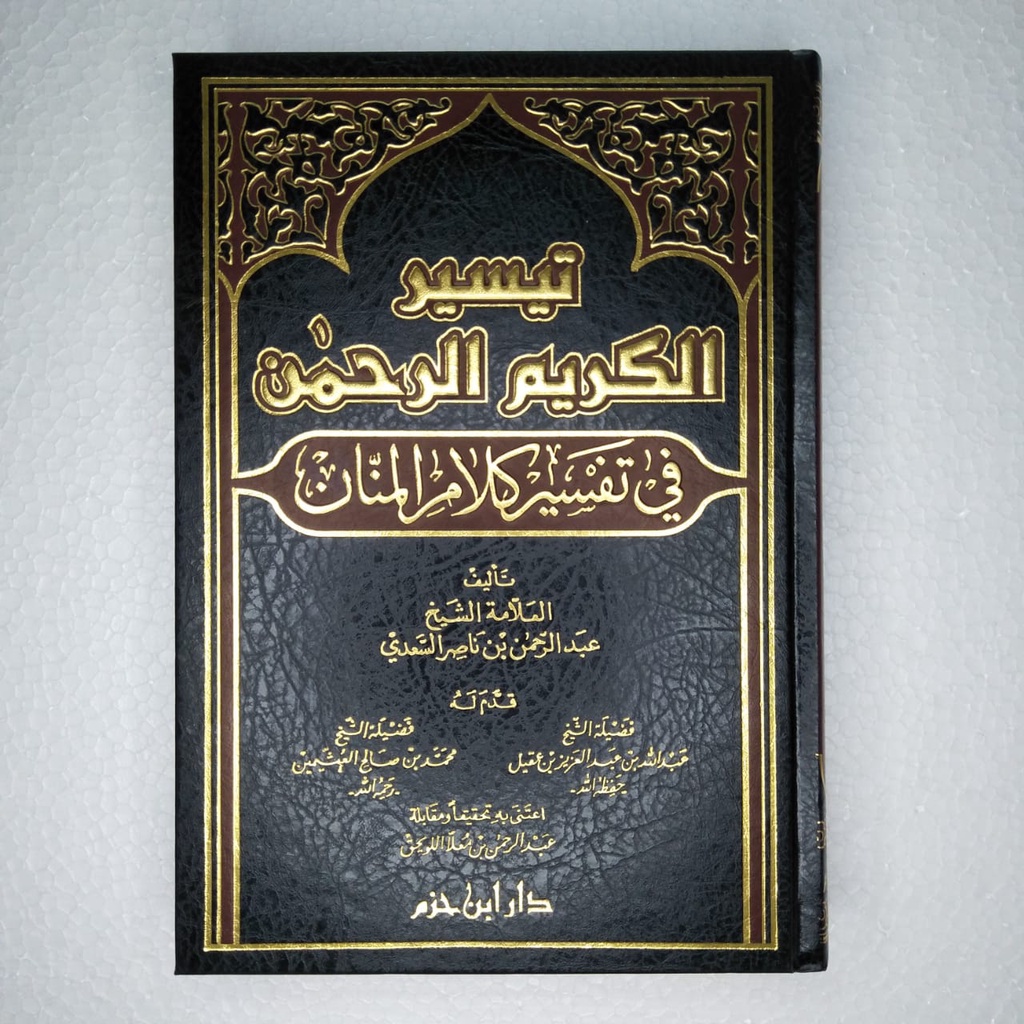 تيسير
الكريم الرحمٰن
في تفسير كلام المنّان
تَأليفُ
العَلّامة الشَيخ
عبَد الرّحمٰن بْن نَاصِر السَّعدي
قدَّمَ لَهُ
فَضيْلَة الشّيخ
عَبْد الله بن عبد العَزيز بن عقيل
-حَفِظهُ الله-
فَضيْلَة الشّيخ
محمَّد بن صَالح العُثيمين
-رَحِمَهُ الله-
اعتَنَى بهِ تحقيقاً ومقَابلة
عَبْد الرحمٰن بن مُعَلّا اللويحق
دار ابن حزم